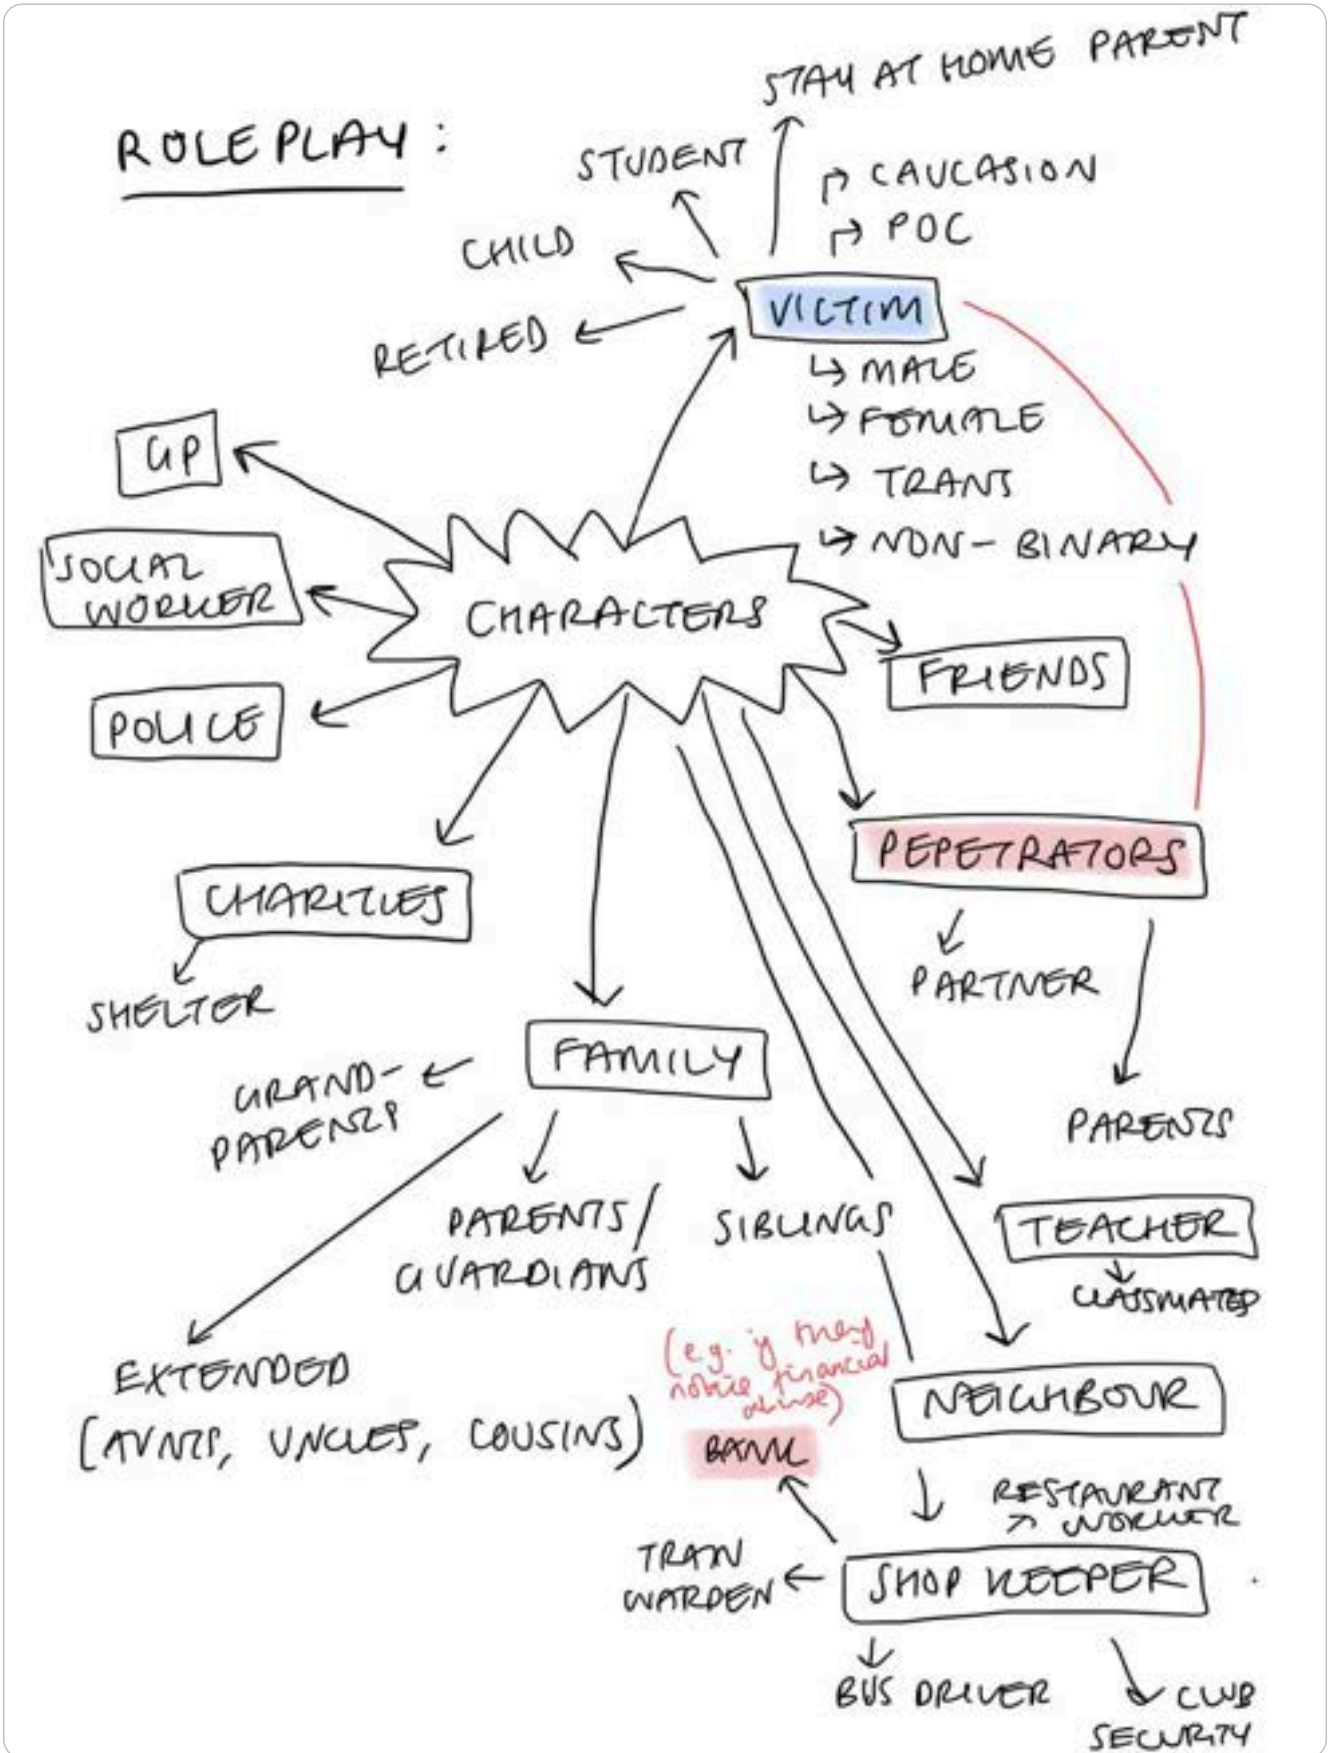 ROLEPLAY:
STAY AT HOME PARENT
STUDENT
CAUCASION
CHILD
POC
RETIRED
VICTIM
MALE
FEMALE
TRANS
NON-BINARY
GP
SOCIAL
WORKER
POLICE
CHARACTERS
FRIENDS
PEPETRATORS
PARTNER
PARENTS
CHARITIES
SHELTER
FAMILY
GRAND-
PARENTS
PARENTS/
GUARDIANS
SIBLINGS
EXTENDED
(AUNTS, UNCLES, COUSINS)
TEACHER
CLASSMATES
NEIGHBOUR
(e.g. if they
notice financial
abuse)
BANK
RESTAURANT
WORKER
SHOP KEEPER
TRAIN
WARDEN
BUS DRIVER
CLUB
SECURITY